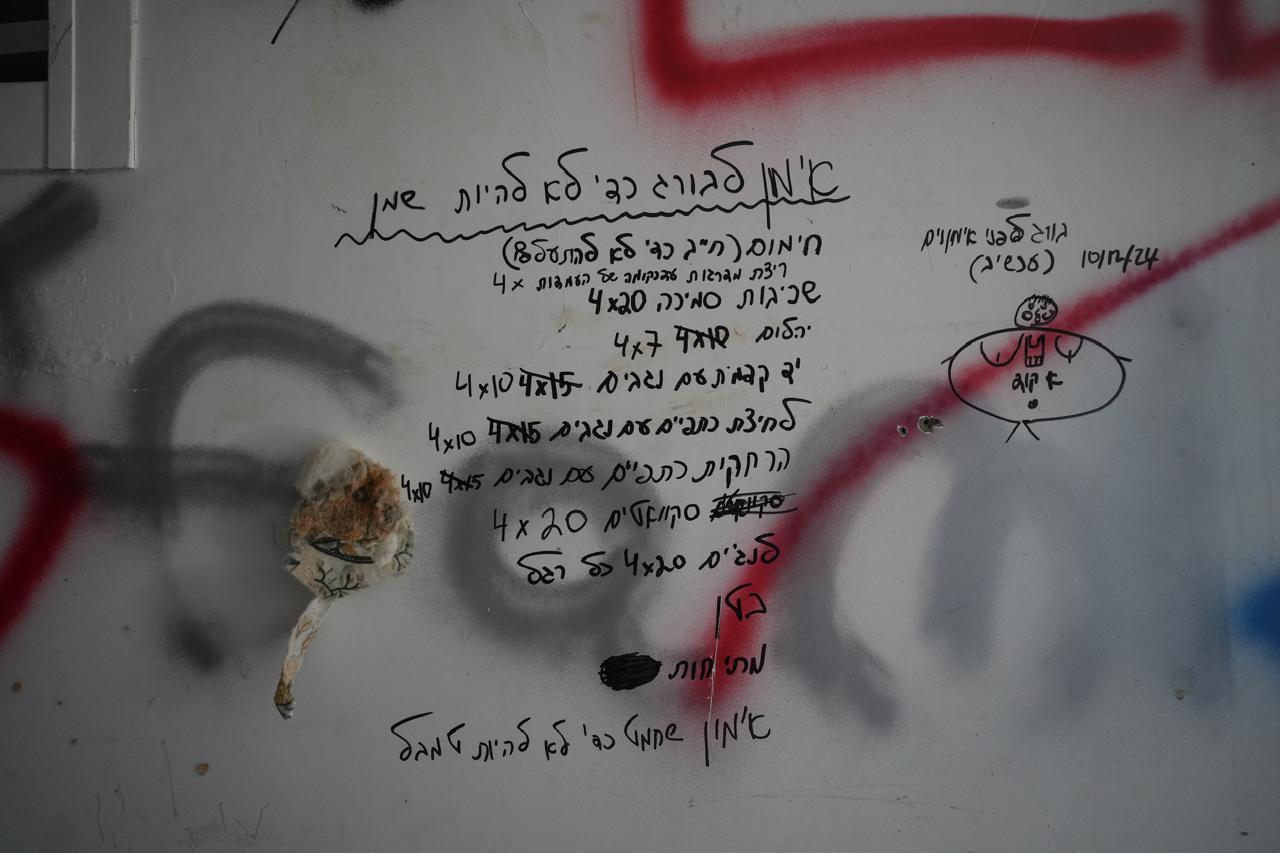 אימון לגורג כדי לא להיות שמן
חימום (חייב כדי לא להתעלף)
ריצת מדרגות של העמדות ×4
שכיבות סמיכה 4x20
יהלום 4x10 4x7
יד קדמת עם נגבים 4x15 4x10
לחיצת כתפיים עם נגבים 4x15 4x10
הרחקית כתפיים עם נגבים 4x15 4x10
סקוואטים 4x20
לנג'ים 4x20 כל רגל
בטן
מתיחות
אימון שחמט כדי לא להיות טמבל
גורג לפני אימונים
(עכשיו) 10/12/24
א קוב